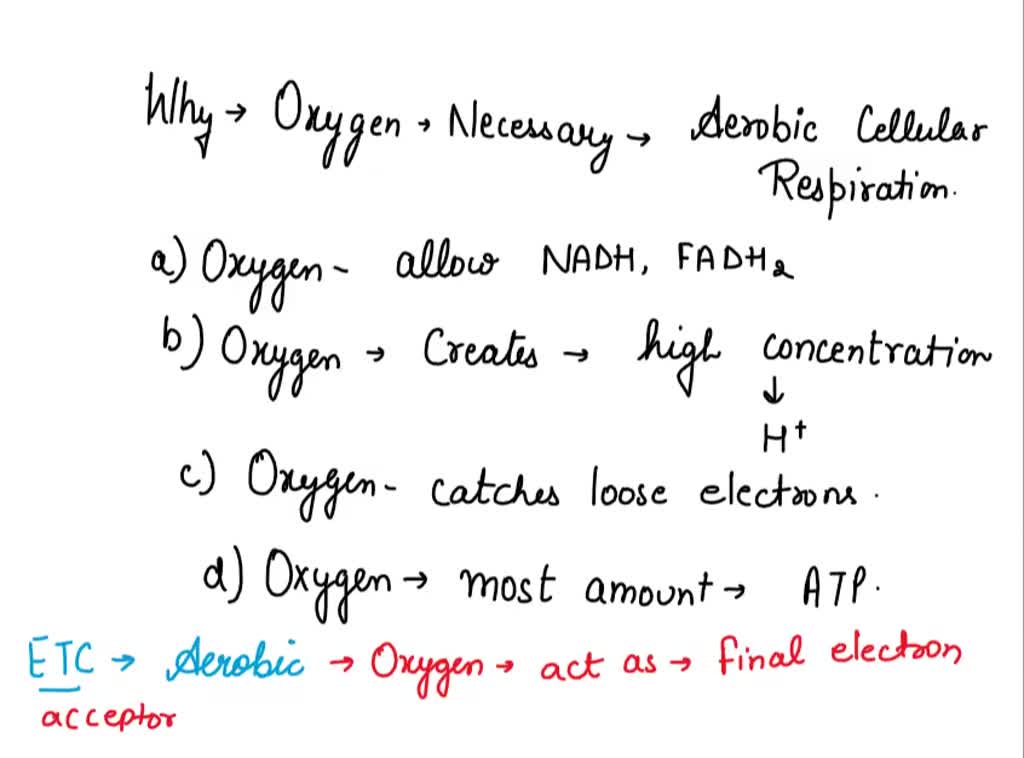 Why → Oxygen → Necessary → Aerobic Cellular
Respiration.
a) Oxygen - allow NADH, FADH₂
b) Oxygen → Creates → high concentration
↓
H⁺
c) Oxygen - catches loose electrons.
d) Oxygen → most amount → ATP.
ETC → Aerobic → Oxygen → act as → final electron
acceptor